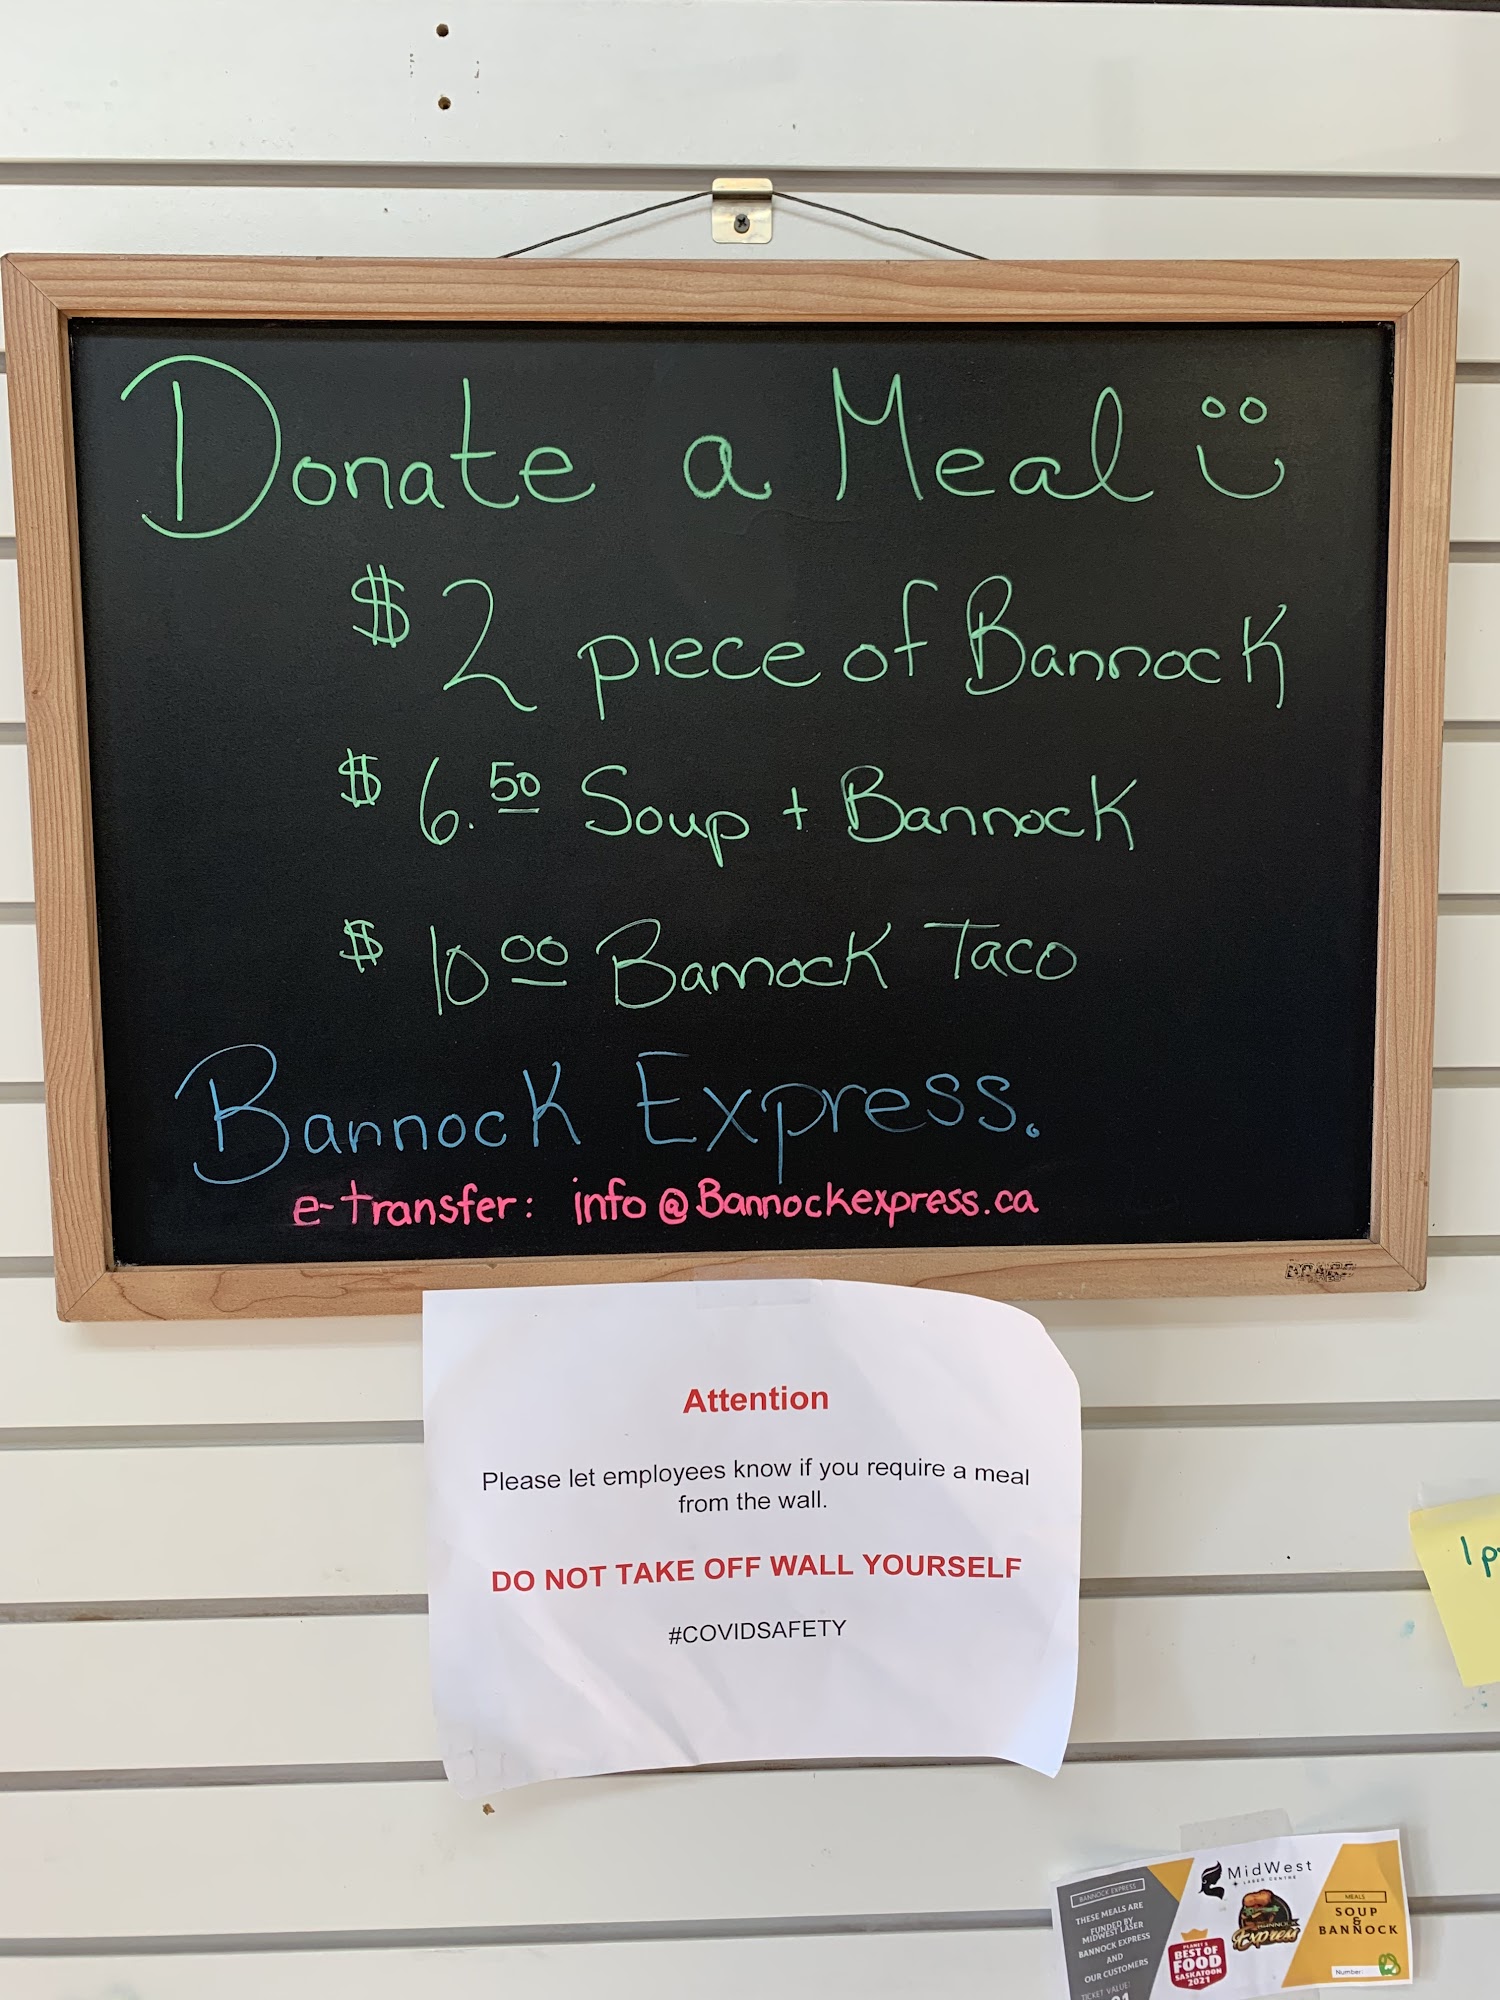 Donate a Meal
$2 piece of Bannock
$6.50 Soup + Bannock
$10 00 Bannock Taco
Bannock Express.
e-transfer: info@Bannockexpress.ca
Attention
Please let employees know if you require a meal
from the wall.
DO NOT TAKE OFF WALL YOURSELF
#COVIDSAFETY
1 p
BANNOCK EXPRESS
THESE MEALS ARE
FUNDED BY
MIDWEST LASER
BANNOCK EXPRESS
AND
OUR CUSTOMERS
TICKET VALUE:
MidWest
LASER CENTRE
Express
PLANET S
BEST OF
FOOD
SASKATOON
2021
MEALS
SOUP
&
BANNOCK
Number: